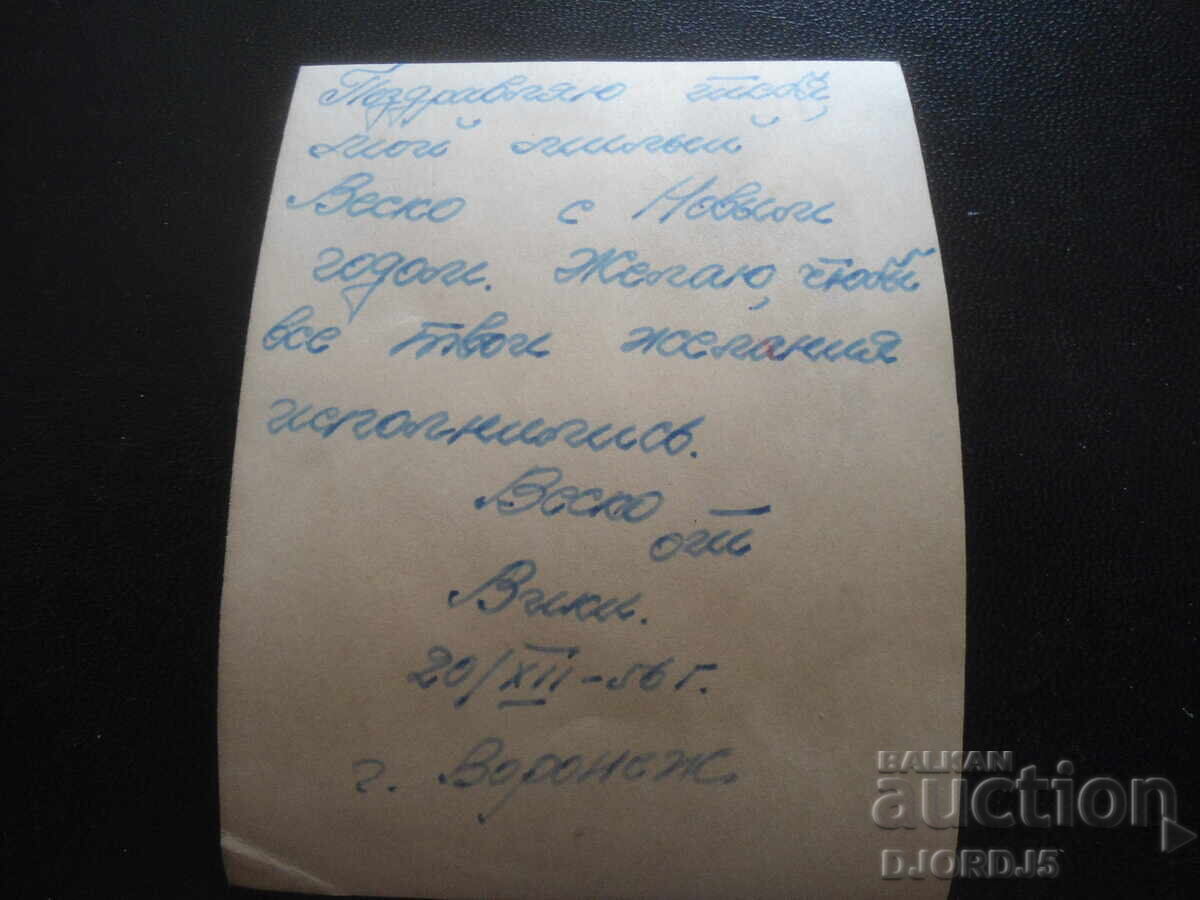 Поздравляю тебя,
мой милый
Веско с Новым
годом. Желаю, чтобы
все твои желания
исполнились.
Веско
от
Вики.
20/XII-56 г.
г. Воронеж.
BALKAN
auction
DJORDJ5